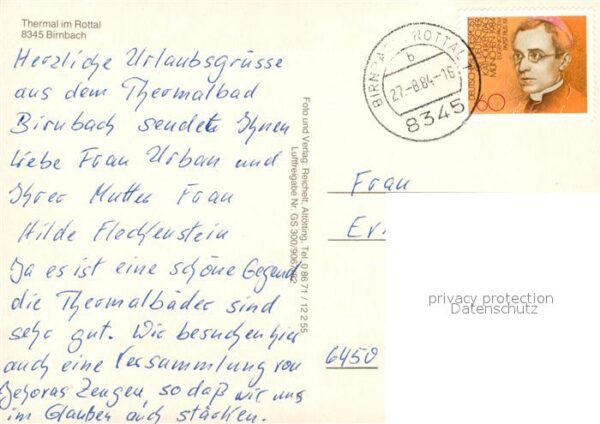 Thermal im Rottal
8345 Birnbach
Herzliche Urlaubsgrüsse
aus dem Thermalbad
Birnbach sendet Ihnen
liebe Frau Urban und
Ihrer Mutter Frau
Hilde Flechenstein
Ja es ist eine schöne Gegend
die Thermalbäder sind
sehr gut. Wir besuchen hier
auch eine Versammlung von
Jehovas Zeugen, so daß wir uns
im Glauben auch stärken.
Foto und Verlag: Reichelt, Altötting, Tel. 0 86 71 / 12 2 55
Luftfreigabe Nr. GS 300/9067/82
27.-8.84-16
b
8345
60
Frau
Er
6450
privacy protection
Datenschutz